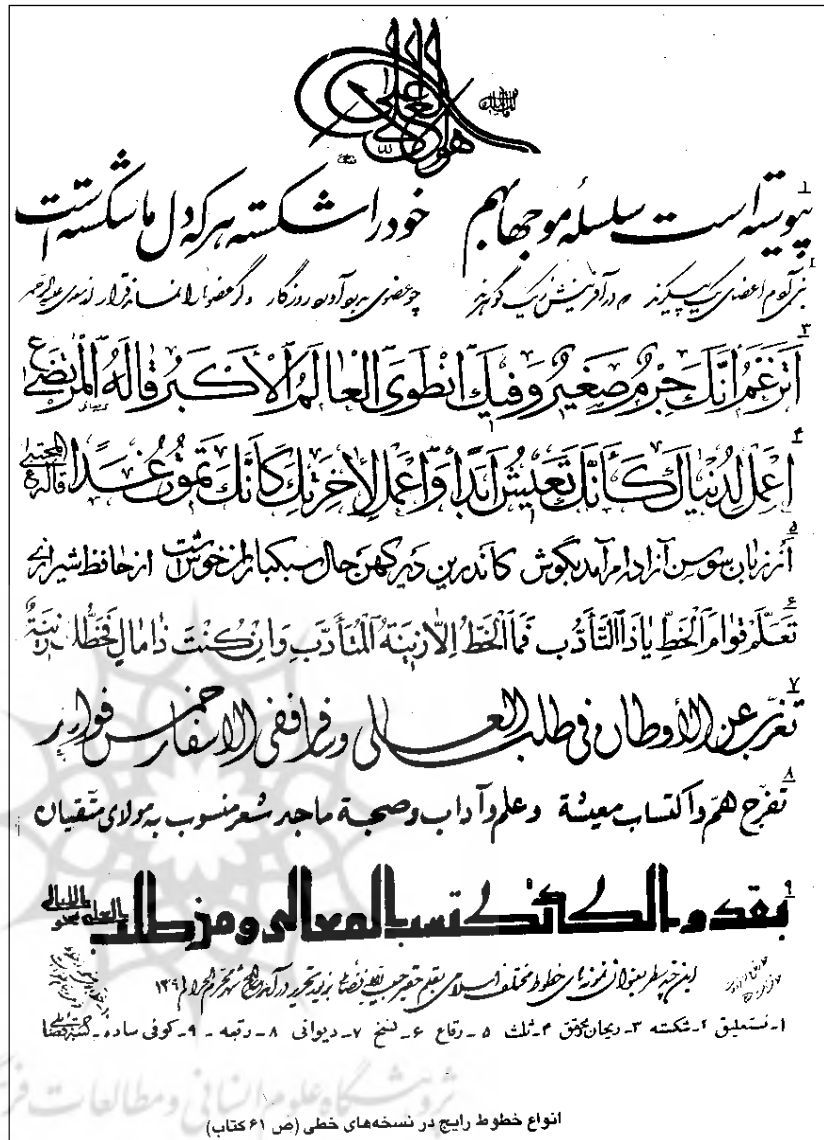 هو العلی
۱ پیوسته است سلسلهٔ موجها بهم خود را شکسته هر که دل ما شکسته است
۲ بنی آدم اعضای یک پیکرند که در آفرینش ز یک گوهرند چو عضوی بدرد آورد روزگار دگر عضوها را نماند قرار از سعدی علیه الرحمه
۳ اَتَزْعَمُ اَنَّكَ جِرْمٌ صَغیرٌ وَفیكَ انْطَوَی الْعالَمُ الْاَكْبَرُ قالَهُ الْمُرْتَضی ع
۴ اِعْمَلْ لِدُنْیاكَ كَاَنَّكَ تَعیشُ اَبَداً وَاعْمَلْ لِاٰخِرَتِكَ كَاَنَّكَ تَمُوتُ غَداً قاله المجتبی ع
۵ از زبان سوسن آزاده‌ام آمد بگوش کاندرین دیر کهن حال سبکباران خوش است از حافظ شیرازی
۶ تَعَلَّمْ قِوامَ الْخَطِّ یا ذَا التَّأَدُّبِ فَمَا الْخَطُّ اِلّا زینَةُ الْمُتَأَدِّبِ وَاِنْ كُنْتَ ذا مالٍ فَخَطُّكَ زینَةٌ
۷ تغرّب عن الأوطان فی طلب العلی وسافر ففی الاسفار خمس فوائد
۸ تفرّج همّ واکتساب معیشة وعلم وآداب وصحبة ماجد شعر منسوب به مولای متقیان
۹ بقدر الکد تکتسب المعالی ومن طلب العلی سهر اللیالی
این چند سطر بعنوان نمونه‌های خطوط مختلف اسلامی بقلم حقیر حبیب الله فضائلی شهر محرم الحرام ۱۳۹۱
۱- نستعلیق ۲- شکسته ۳- ریحان و محقق ۴- ثلث ۵- رقاع ۶- نسخ ۷- دیوانی ۸- رقعه - ۹- کوفی ساده -
پژوهشگاه علوم انسانی و مطالعات فر
انواع خطوط رایج در نسخه‌های خطی (ص ۶۱ کتاب)